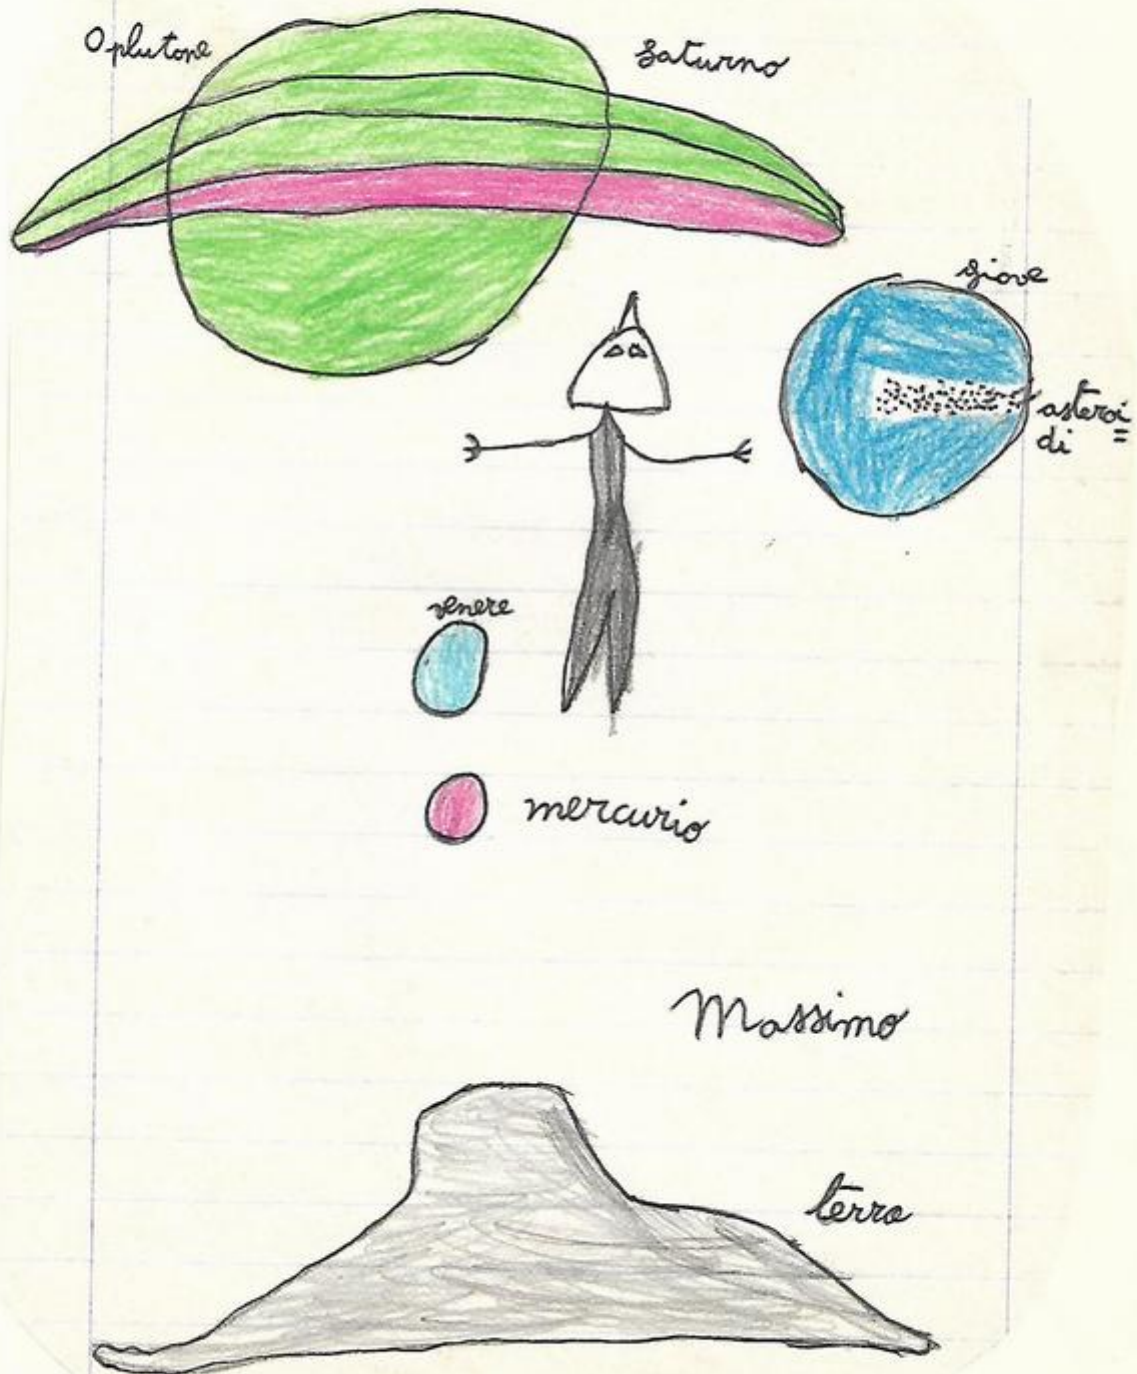 plutone
saturno
giove
asteroi=
di
venere
mercurio
Massimo
terra